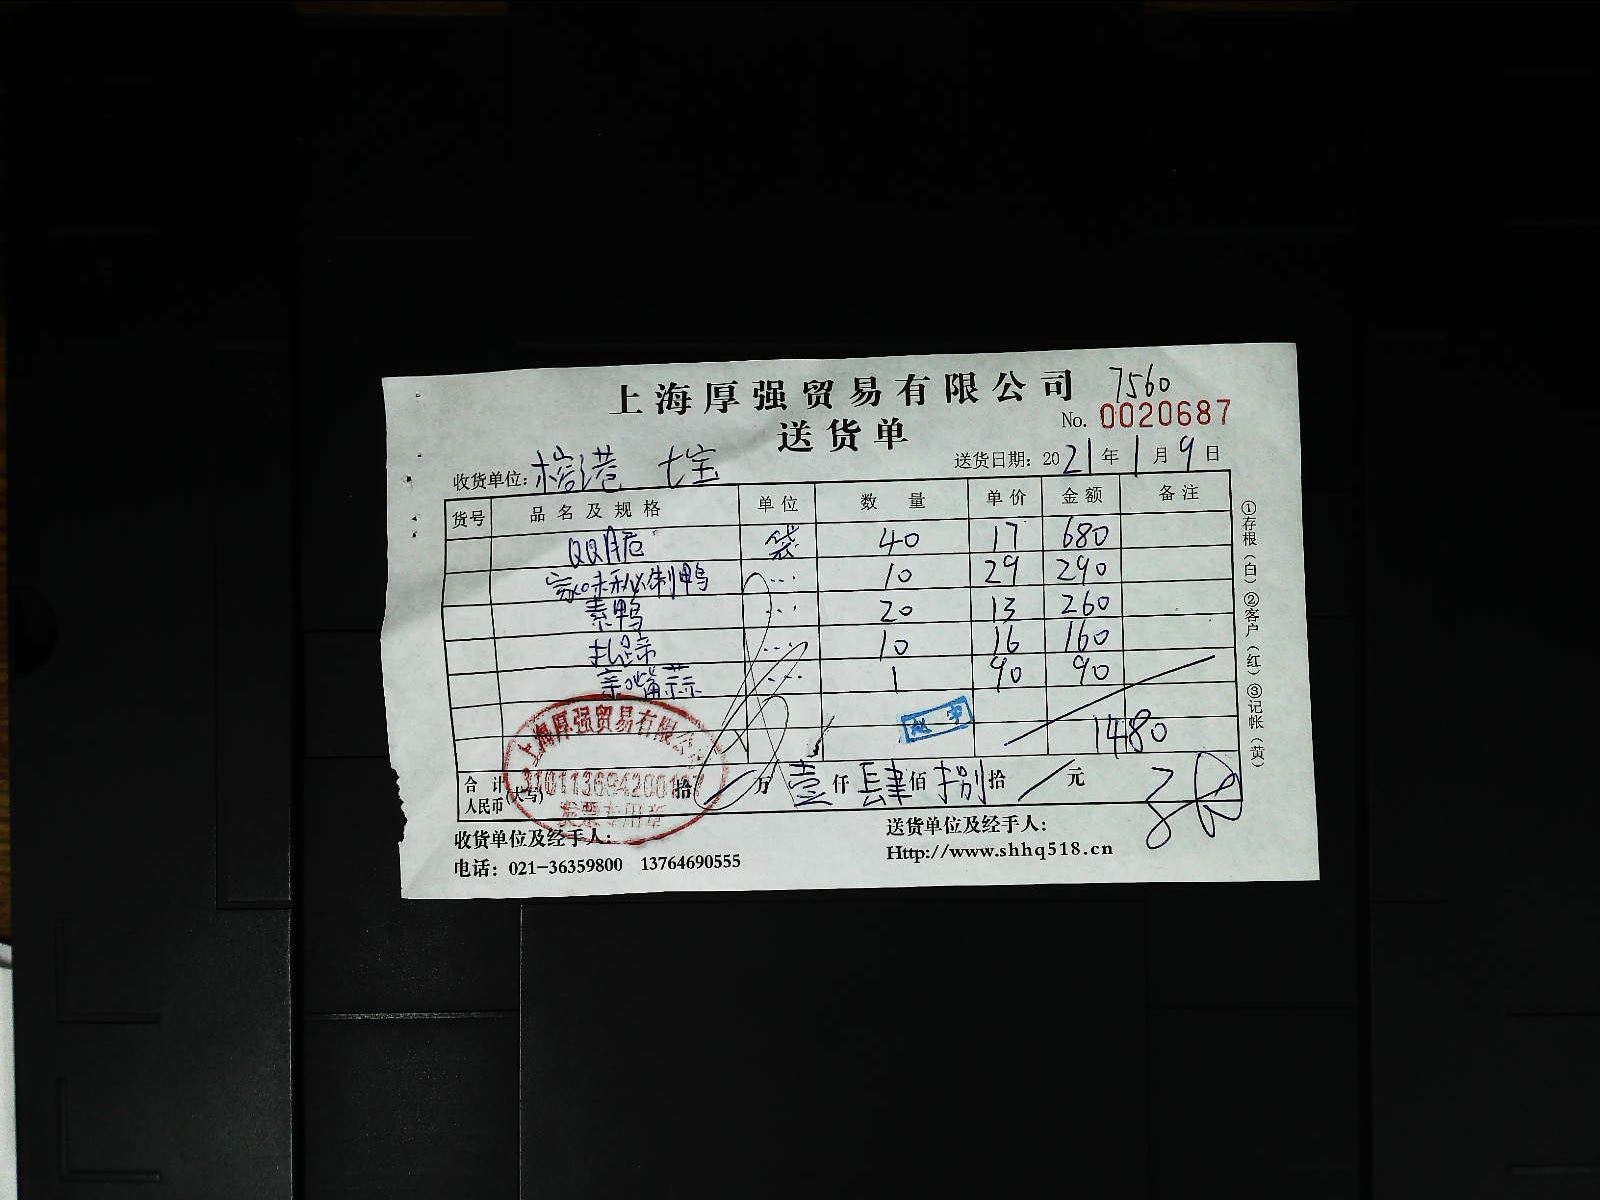 上海厚强贸易有限公司 7560
送货单 No. 0020687
收货单位: 榕港 七宝 送货日期: 2021年1月9日
货号 品名及规格 单位 数量 单价 金额 备注
QQ脆 袋 40 17 680
家味秘制鸭 … 10 29 290
素鸭 … 20 13 260
扎蹄 … 10 16 160
亲嘴蒜 … 1 90 90
1480
合计人民币(大写) 拾 万 壹仟肆佰捌拾 元
上海厚强贸易有限公司
发票专用章
收货单位及经手人: 送货单位及经手人:
电话: 021-36359800 13764690555 Http://www.shhq518.cn
①存根(白)②客户(红)③记帐(黄)